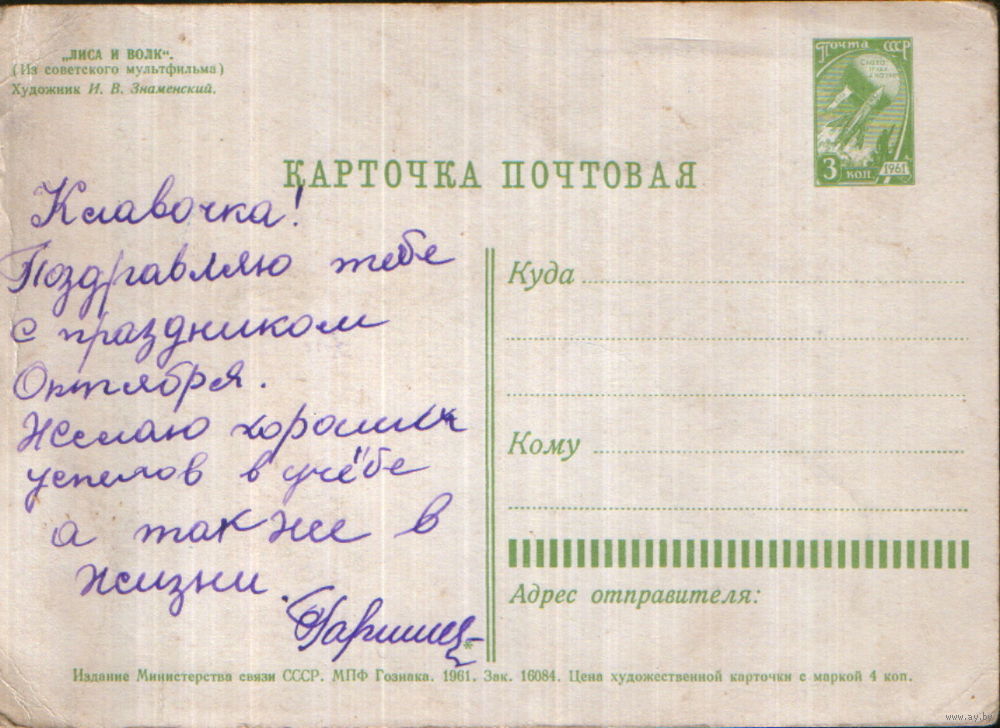 „ЛИСА И ВОЛК“.
(Из советского мультфильма)
Художник И. В. Знаменский.
почта СССР
Слава
науке
3 коп.
1961
КАРТОЧКА ПОЧТОВАЯ
Клавочка!
Поздравляю тебе
с праздником
Октября.
Желаю хороших
успехов в учёбе
а так же в
жизни.
Куда
Кому
Адрес отправителя:
Издание Министерства связи СССР. МПФ Гознака. 1961. Зак. 16084. Цена художественной карточки с маркой 4 коп.
www.ay.by